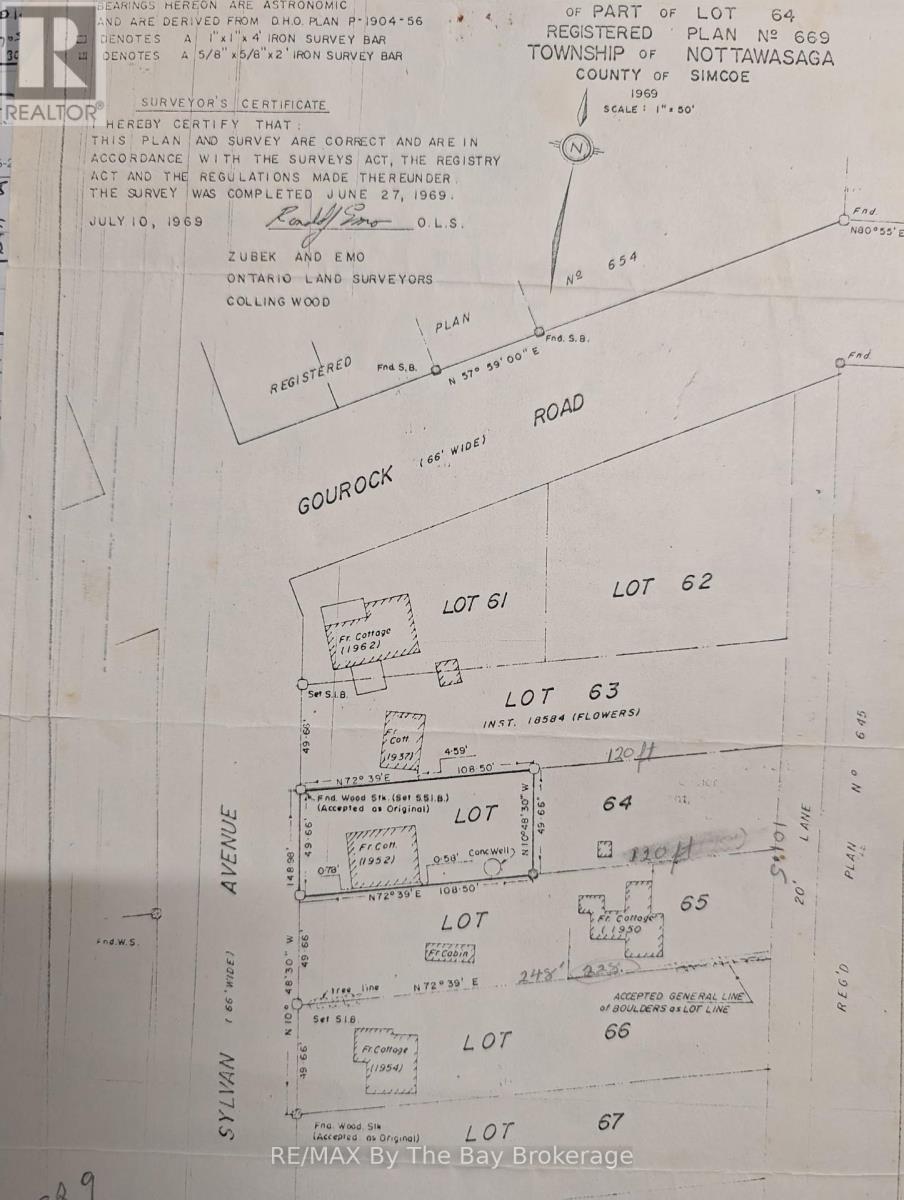 BEARINGS HEREON ARE ASTRONOMIC
AND ARE DERIVED FROM D.H.O. PLAN P-1904-56
DENOTES A 1"x1"x4' IRON SURVEY BAR
DENOTES A 5/8"x5/8"x2' IRON SURVEY BAR
REALTOR®
SURVEYOR'S CERTIFICATE
I HEREBY CERTIFY THAT:
THIS PLAN AND SURVEY ARE CORRECT AND ARE IN
ACCORDANCE WITH THE SURVEYS ACT, THE REGISTRY
ACT AND THE REGULATIONS MADE THEREUNDER.
THE SURVEY WAS COMPLETED JUNE 27, 1969.
JULY 10, 1969 O.L.S.
ZUBEK AND EMO
ONTARIO LAND SURVEYORS
COLLINGWOOD
OF PART OF LOT 64
REGISTERED PLAN Nº 669
TOWNSHIP OF NOTTAWASAGA
COUNTY OF SIMCOE
1969
SCALE: 1"=50'
N
Fnd.
N80°55'E
REGISTERED PLAN Nº 654
Fnd. S.B.
Fnd. S.B.
N 57° 59' 00" E
Fnd.
GOUROCK (66' WIDE) ROAD
LOT 61
LOT 62
Fr. Cottage
(1962)
Set S.I.B.
LOT 63
INST. 18584 (FLOWERS)
49.66'
Fr.
Cott.
(1937)
4.59'
120ft
N72°39'E
108.50'
Fnd. Wood Stk. (Set S.S.I.B.)
(Accepted as Original)
LOT 64
49.66'
148.98'
Fr. Cott.
(1952)
0.78'
0.58'
Conc. Well
N10°48'30"W
49.66'
120ft
101.5
N72°39'E
108.50'
LOT 65
Fr. Cottage
(1950
Fr. Cabin
49.66'
N 10° 48' 30" W
tree line
N72°39' E
248'
228.
Set S.I.B.
ACCEPTED GENERAL LINE
of BOULDERS as LOT LINE
LOT 66
Fr. Cottage
(1954)
49.66'
Fnd. Wood Stk
(Accepted as Original)
LOT 67
SYLVAN (66' WIDE) AVENUE
Fnd. W.S.
20' LANE
REG'D PLAN Nº 645
RE/MAX By The Bay Brokerage